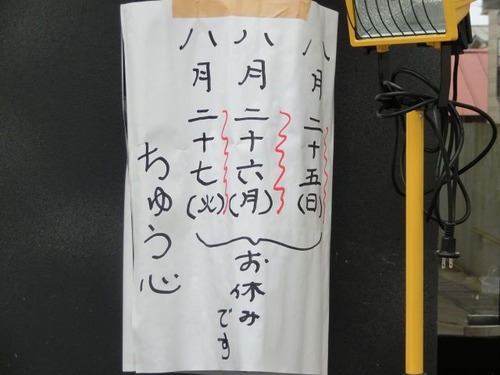 八月二十五(日)
八月二十六(月)
八月二十七(火)
お休みです
ちゅう心